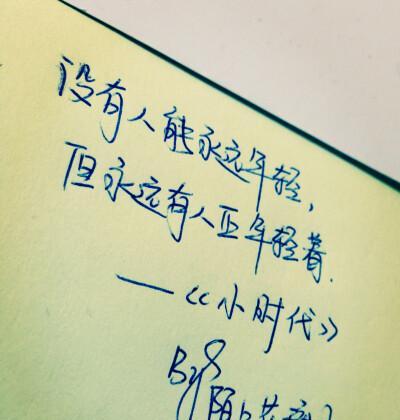 没有人能永远年轻，
但永远有人正年轻着.
—《小时代》
By